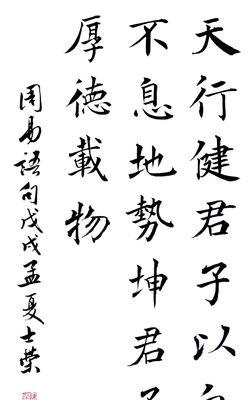 天行健君子以
不息地勢坤君
厚德載物
周易語句戊戌孟夏士榮